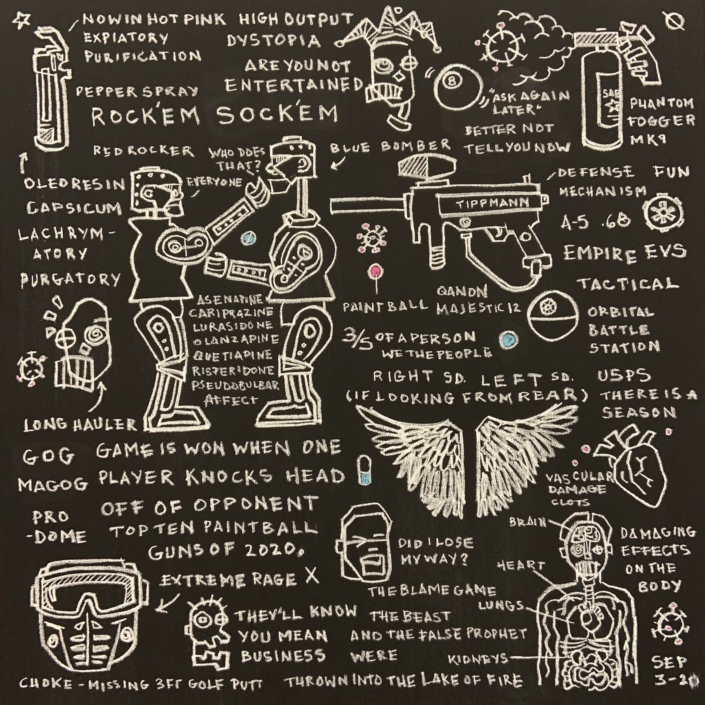 NOW IN HOT PINK
EXPIATORY
PURIFICATION
PEPPER SPRAY
HIGH OUTPUT
DYSTOPIA
ARE YOU NOT
ENTERTAINED
8
"ASK AGAIN
LATER"
BETTER NOT
TELL YOU NOW
SAB
PHANTOM
FOGGER
MK9
ROCK'EM SOCK'EM
RED ROCKER
WHO DOES
THAT?
EVERYONE
BLUE BOMBER
OLEORESIN
CAPSICUM
LACHRYM-
ATORY
PURGATORY
TIPPMANN
DEFENSE FUN
MECHANISM
A-5 .68
EMPIRE EVS
TACTICAL
PAINTBALL
QANON
MAJESTIC 12
ORBITAL
BATTLE
STATION
ASENAPINE
CARIPRAZINE
LURASIDONE
OLANZAPINE
QUETIAPINE
RISPERIDONE
PSEUDOBULBAR
AFFECT
3/5 OF A PERSON
WE THE PEOPLE
RIGHT SD. LEFT SD.
(IF LOOKING FROM REAR)
USPS
THERE IS A
SEASON
LONG HAULER
GOG
MAGOG
PRO
-DOME
GAME IS WON WHEN ONE
PLAYER KNOCKS HEAD
OFF OF OPPONENT
TOP TEN PAINTBALL
GUNS OF 2020.
VASCULAR
DAMAGE
CLOTS
EXTREME RAGE X
DID I LOSE
MY WAY?
BRAIN
HEART
LUNGS
KIDNEYS
DAMAGING
EFFECTS
ON THE
BODY
THEY'LL KNOW
YOU MEAN
BUSINESS
THE BLAME GAME
THE BEAST
AND THE FALSE PROPHET
WERE
THROWN INTO THE LAKE OF FIRE
CHOKE - MISSING 3FT GOLF PUTT
SEP
3-20